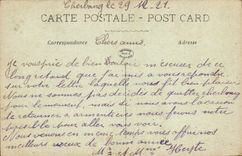 Cherbourg le 29 12. 21.
CARTE POSTALE - POST CARD
Correspondance Chers amis. Adresse
Je vous prie de bien vouloir m'excuser de ce
long retard que j'ai mis a vous repondre
sur votre lettre laquelle nous fit bien plaisir
nous ne sommes pas decides de quitter cherbourg
pour le moment, mais si nous avons l'occasion
de retourner a nous ferons notre
possible pour aller vous voir.
Nous venons en meme temps vous offrir nos
meilleurs voeux de bonne année
M. et Mme